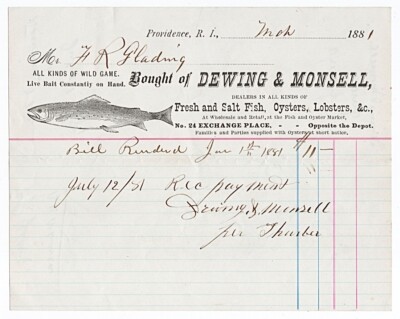 Providence, R. I., Mch 1881
Mr F R Glading
ALL KINDS OF WILD GAME.
Live Bait Constantly on Hand.
Bought of DEWING & MONSELL,
DEALERS IN ALL KINDS OF
Fresh and Salt Fish, Oysters, Lobsters, &c.,
At Wholesale and Retail, at the Fish and Oyster Market,
No. 24 EXCHANGE PLACE, - - Opposite the Depot.
Families and Parties supplied with Oysters at short notice,
Bill Rendered Jan 1th 1881 $11-
July 12/81 Rec payment
Dewing & Monsell
per Thurber